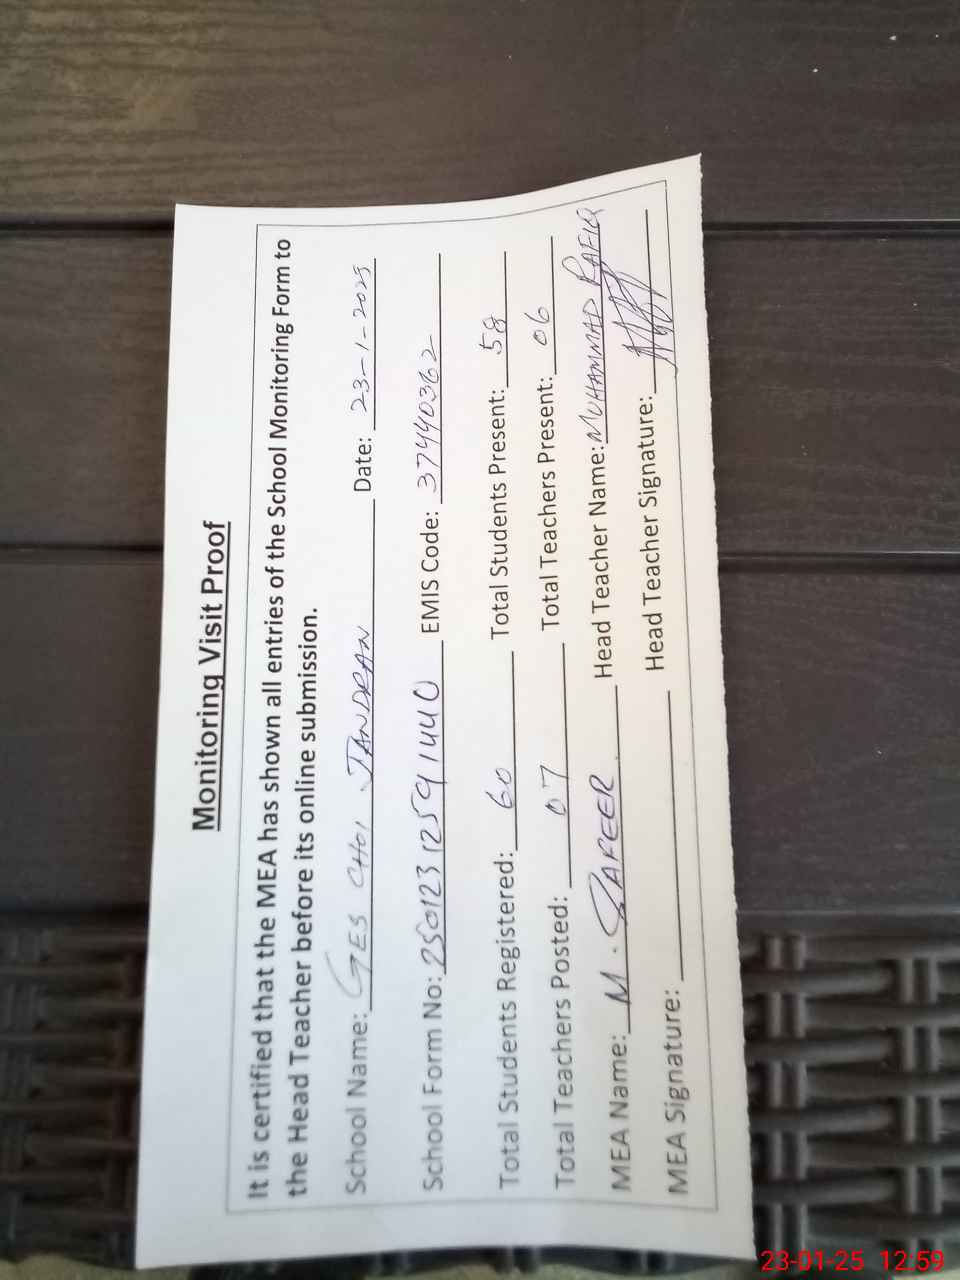 Monitoring Visit Proof
It is certified that the MEA has shown all entries of the School Monitoring Form to
the Head Teacher before its online submission.
School Name: GES CHOI JANDRAN Date: 23-1-2025
School Form No: 25012312591440 EMIS Code: 37440362
Total Students Registered: 60 Total Students Present: 58
Total Teachers Posted: 07 Total Teachers Present: 06
MEA Name: M. Head Teacher Name: MUHAMMAD RAFIQ
MEA Signature: Head Teacher Signature:
23-01-25 12:59